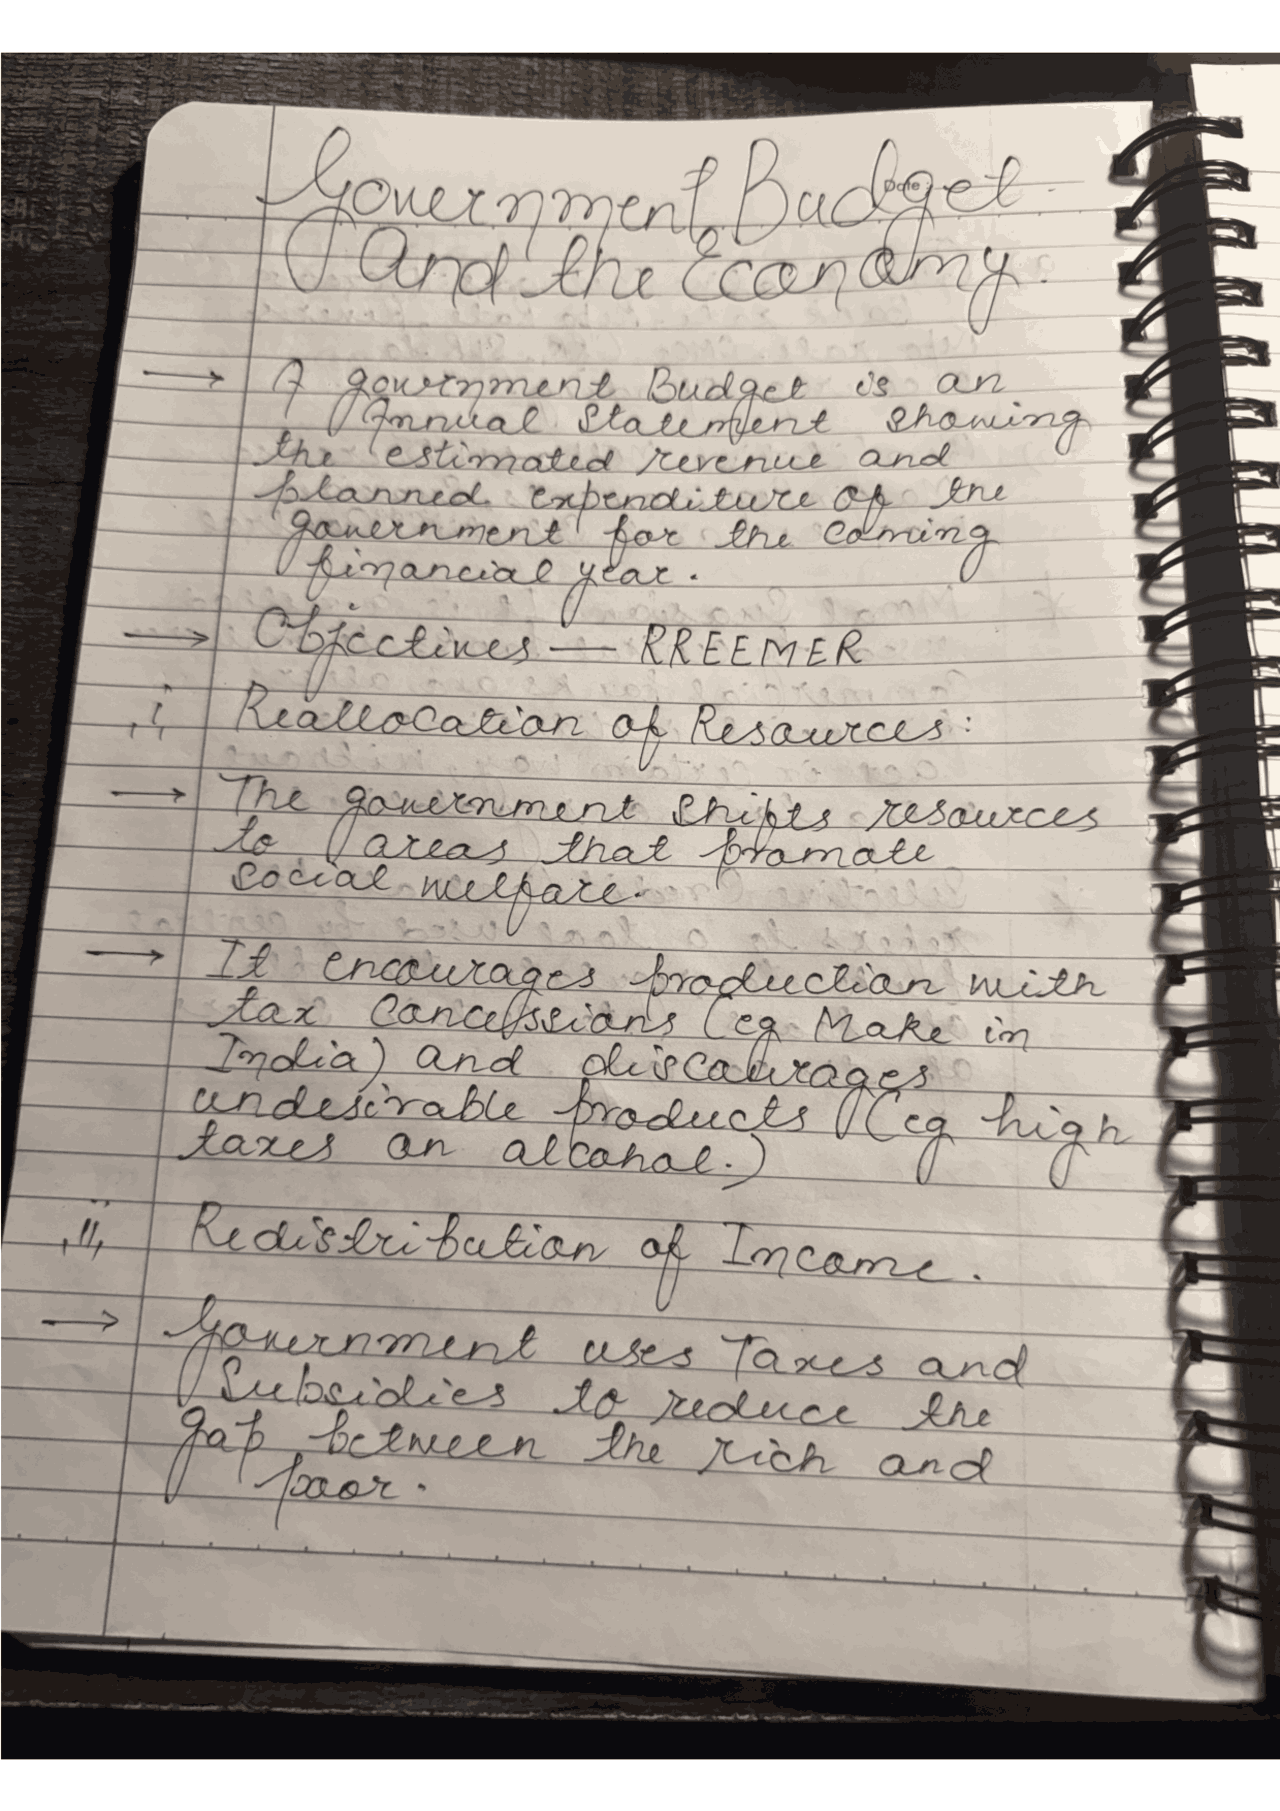 Date :
Government Budget
And the Economy.
→ A government Budget is an
Annual Statement showing
the estimated revenue and
planned expenditure of the
government for the coming
financial year.
→ Objectives — RREEMER
,i, Reallocation of Resources:
→ The government shifts resources
to areas that promote
social welfare.
→ It encourages production with
tax concessions (eg Make in
India) and discourages
undesirable products (eg high
taxes on alcohal.)
,ii, Redistribution of Income.
→ Government uses Taxes and
Subsidies to reduce the
gap between the rich and
poor.